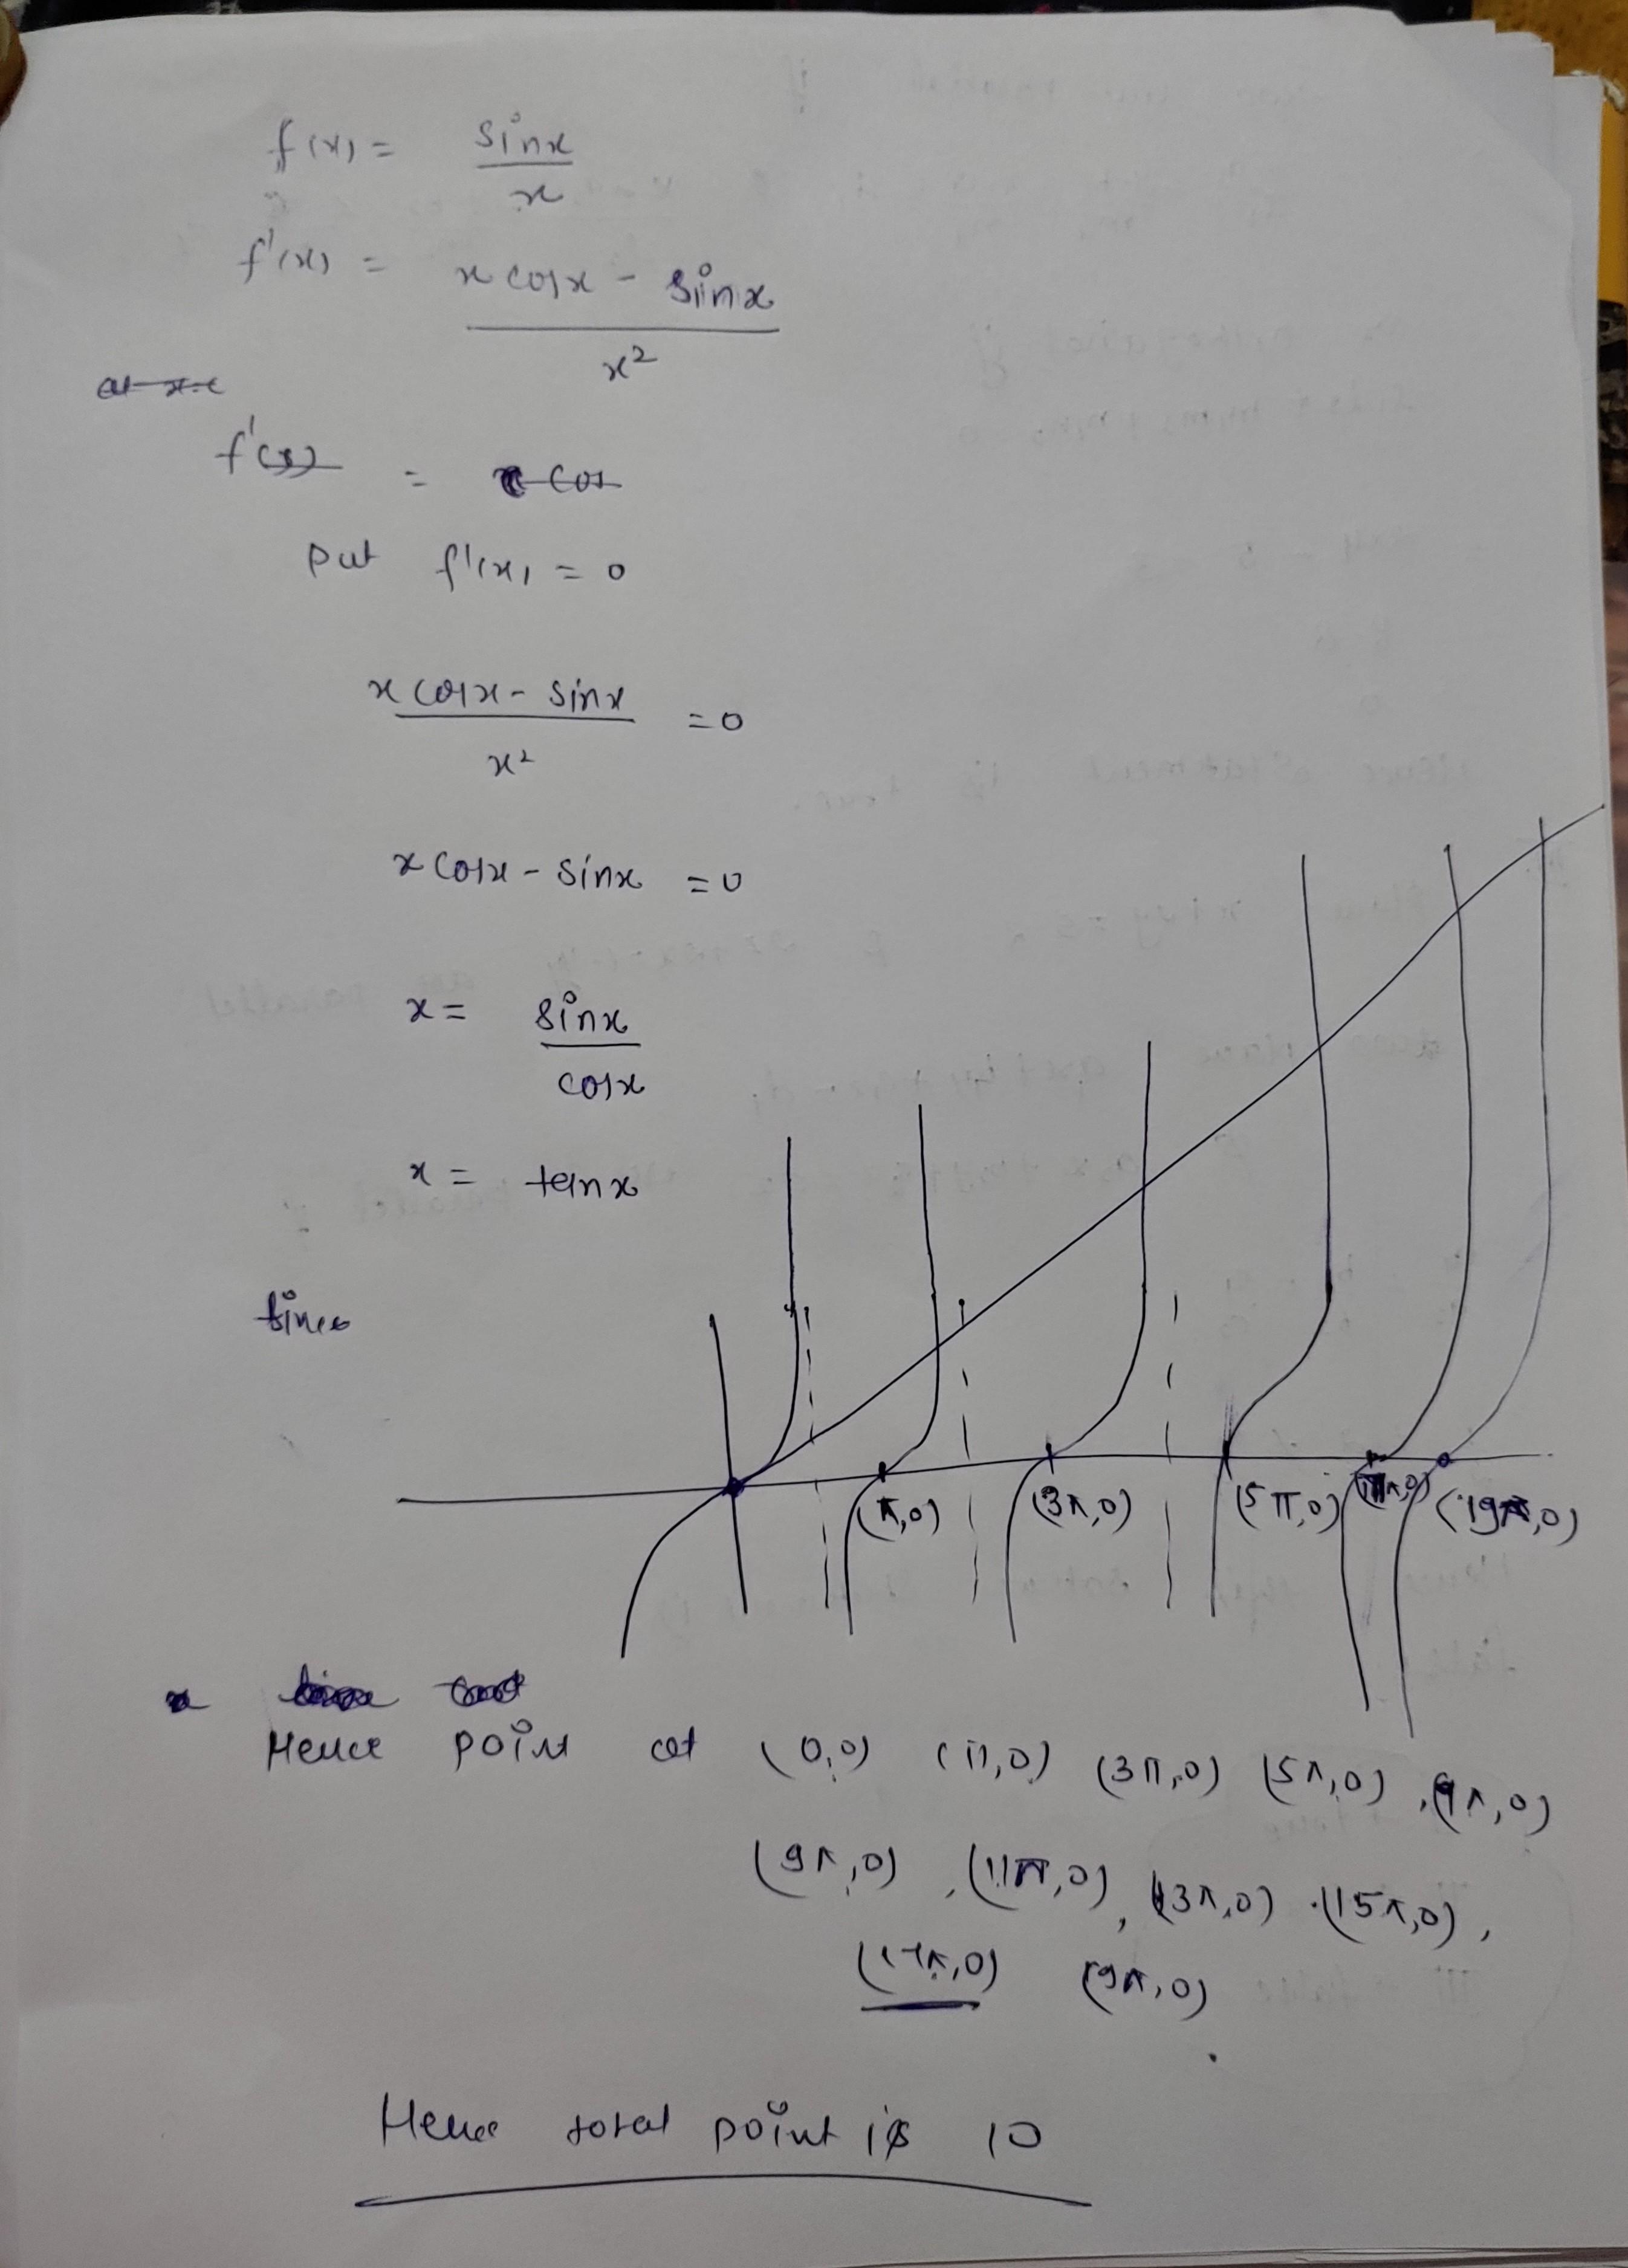 f(x) = sinx / x
f'(x) = x cosx - sinx / x²
f'(x) = x cos
Put f'(x) = 0
x cosx - sinx / x² = 0
x cosx - sinx = 0
x = sinx / cosx
x = tanx
since
(π,0) (3π,0) (5π,0) (19π,0)
Hence point at (0,0) (π,0) (3π,0) (5π,0) ,
(9π,0) , (11π,0) , (13π,0) . (15π,0) ,
(17π,0) (9π,0)
Hence total point is 10